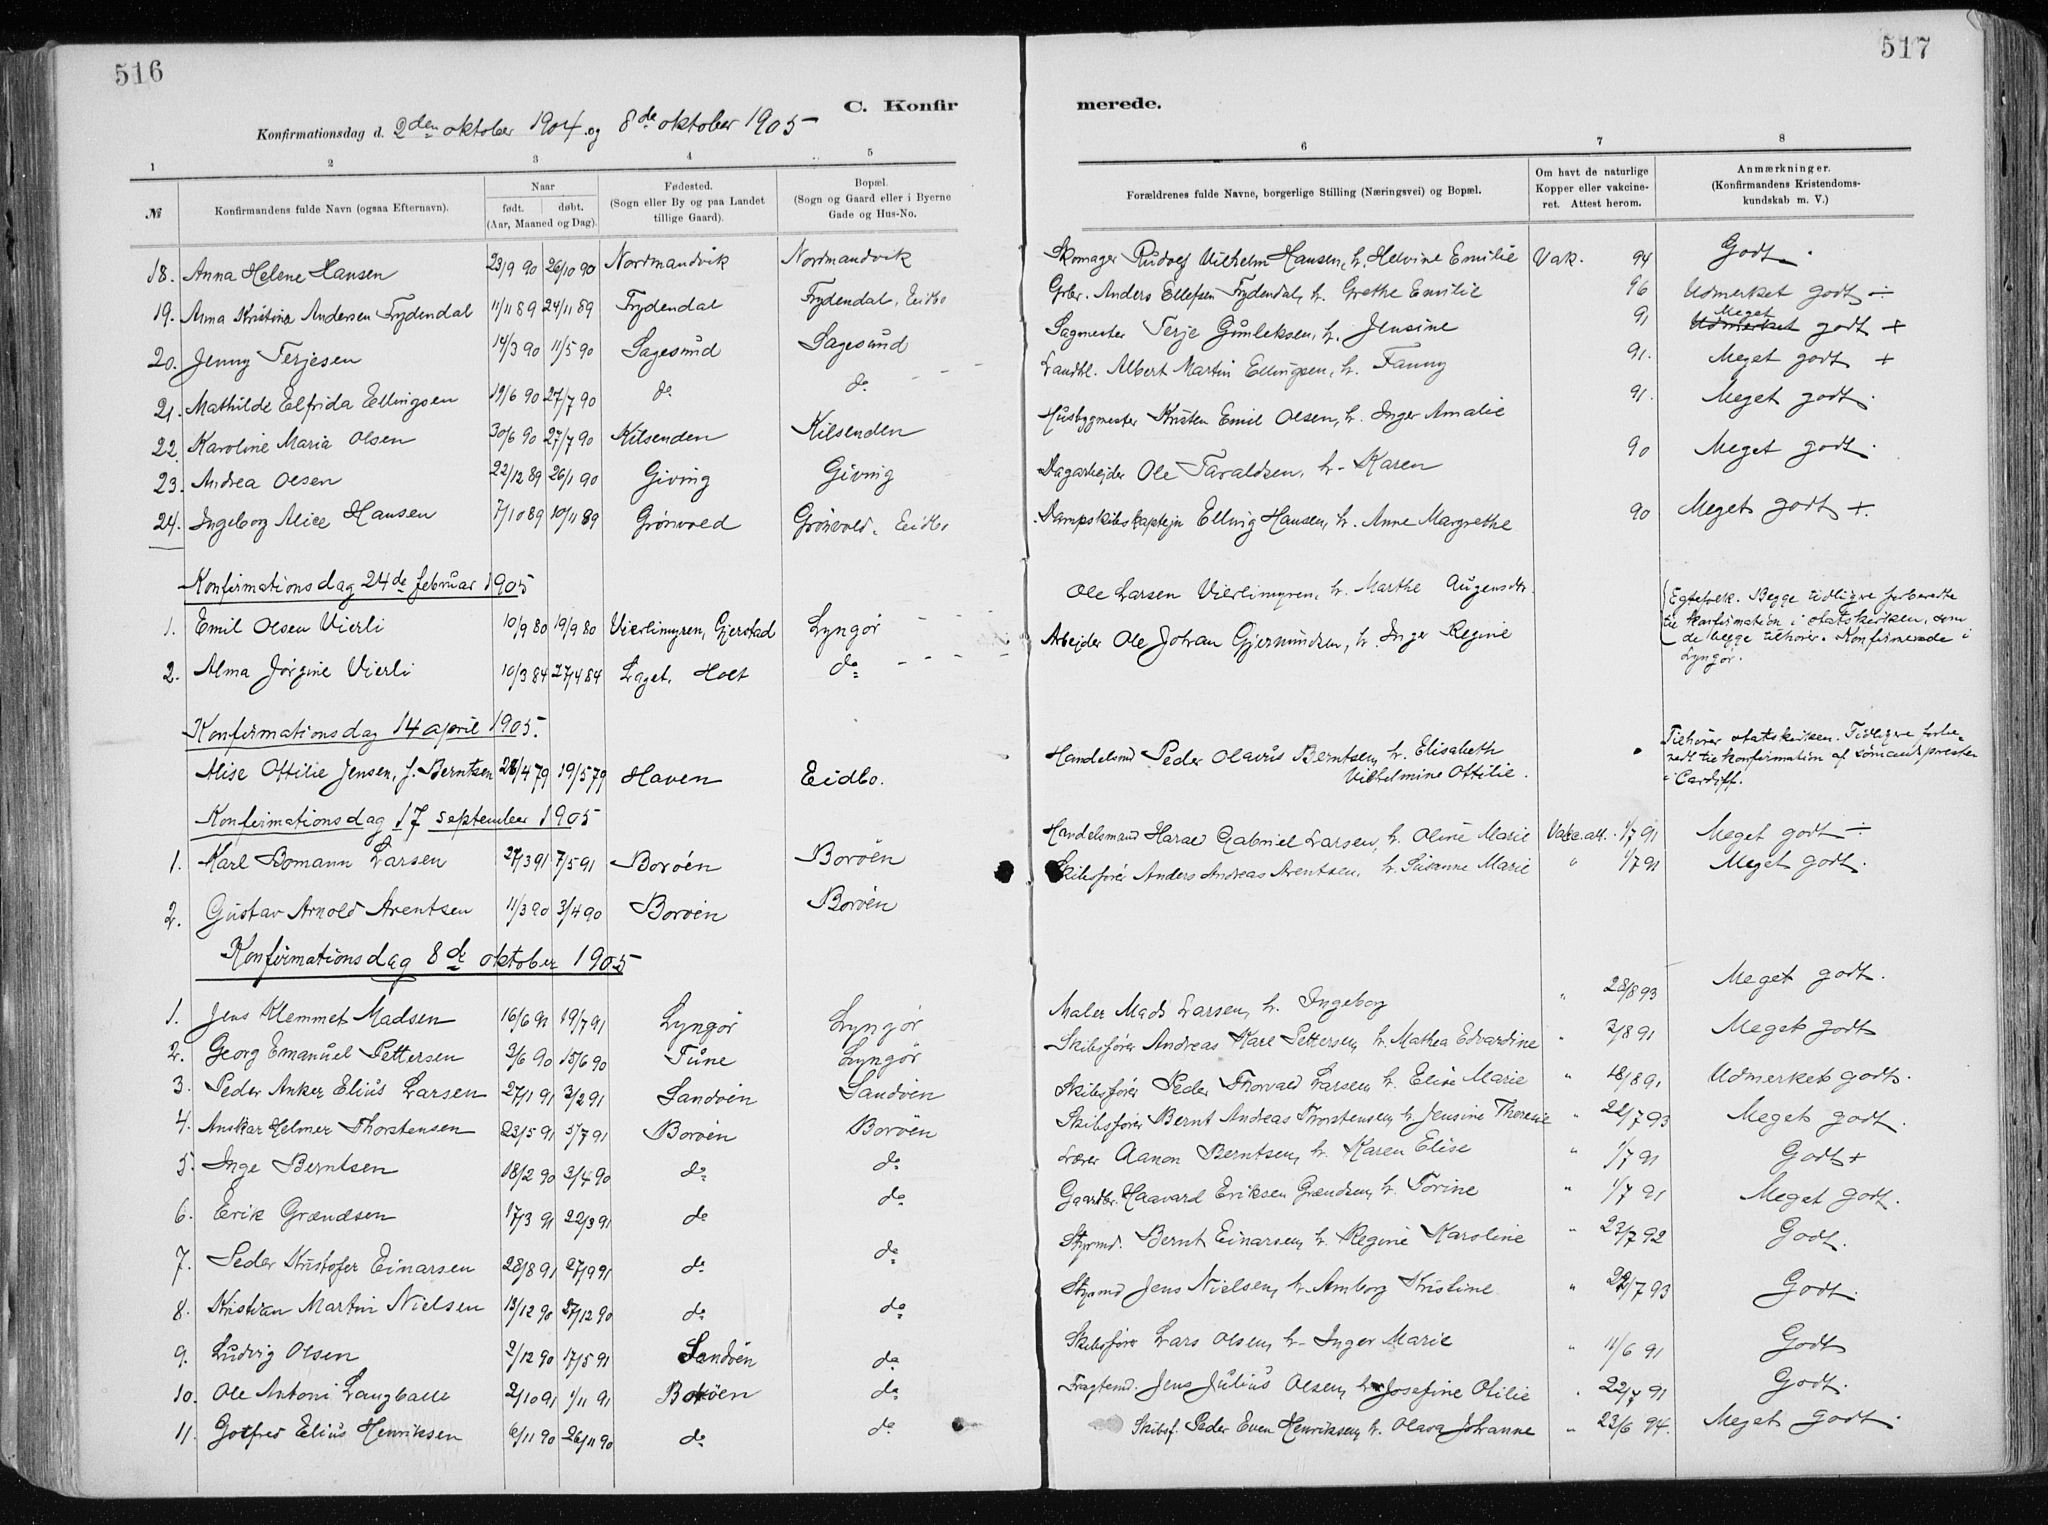 516
517
C. Konfirmerede.
Konfirmationsdag d. 2den oktober 1904 og 8de oktober 1905
1 2 3 4 5 6 7 8
№ Konfirmandens fulde Navn (ogsaa Efternavn). Naar født. døbt. (Aar, Maaned og Dag). Fødested. (Sogn eller By og paa Landet tillige Gaard). Bopæl. (Sogn og Gaard eller i Byerne Gade og Hus-No. Forældrenes fulde Navne, borgerlige Stilling (Næringsvei) og Bopæl. Om havt de naturlige Kopper eller vakcineret. Attest herom. Anmærkninger. (Konfirmandens Kristendomskundskab m. V.)
18. Anna Helene Hansen 23/9 90 26/10 90 Nordmandvik Nordmandvik Skomager Rudolf Vilhelm Hansen, h. Helvine Emilie Vak. 94 Godt.
19. Anna Kristine Andersen Frydendal 11/11 89 24/11 89 Frydendal Frydendal, Eidbo Grbr. Anders Ellefsen Frydendal, h. Grethe Emilie 96 Udmerket godt ÷
20. Jenny Terjesen 14/3 90 11/5 90 Sagesund Sagesund Sagmester Terje Gunleksen, h. Jensine 91 Udmerket Meget godt +
21. Mathilde Elfrida Ellingsen 19/6 90 27/7 90 do do Landhl. Albert Martin Ellingsen, h. Fanny 91. Meget godt +
22. Karoline Maria Olsen 30/6 90 27/7 90 Kilsenden Kilsenden Husbygmester Kristen Emil Olsen, h. Inger Amalie 91. Meget godt.
23. Andrea Olsen 22/12 89 26/1 90 Giving Giving Dagarbejder Ole Taraldsen, h. Karen 90 Meget godt.
24. Ingeborg Alice Hansen 7/10 89 10/11 89 Grönvold Grönvold, Eidbo Dampskibskaptejn Elling Hansen, h. Anne Margrethe 90 Meget godt +.
Konfirmationsdag 24de februar 1905
1. Emil Olsen Vierli 10/9 80 19/9 80 Vierlimyren, Gjerstad Lyngør Ole Larsen Vierlimyren, h. Marthe Augensdtr. Egtefolk. Begge tidligre forberedte til konfirmation i statskirken, som de begge tilhører. Konfirmerede i Lyngør.
2. Alma Jørgine Vierli 10/3 84 27/4 84 Laget, Holt do Arbejder Ole Johan Gjermundsen, h. Inger Regine
Konfirmationsdag 14 april 1905.
Alise Ottilie Jensen, f. Berntsen 28/4 79 19/5 79 Haven Eidbo. Handelsmd Peder Olavus Berntsen, h. Elisabeth Vilhelmine Ottilie. Tilhører statskirken. Tidligre forberedt til konfirmation af sømandspresten i Cardiff.
Konfirmationsdag 17 september 1905
1. Karl Bomann Larsen 27/3 91 7/5 91 Borøen Borøen Handelsmand Harald Gabriel Larsen, h. Oline Marie Vakc. att. 1/7 91 Meget godt ÷
2. Gustav Arnold Arentsen 11/3 90 3/4 90 Borøen Borøen Skibsfører Anders Andreas Arentsen, h. Susanne Marie " 1/7 91 Meget godt.
Konfirmationsdag 8de oktober 1905
1. Jens Klemmet Madsen 16/6 91 19/7 91 Lyngør Lyngør Maler Mads Larsen, h. Ingeborg " 28/8 93 Meget godt.
2. Georg Emanuel Pettersen 3/6 90 15/6 90 Tune Lyngør Skibsfører Andreas Karl Pettersen, h. Mathea Edvardine " 3/8 91 Meget godt
3. Peder Anker Elius Larsen 27/1 91 3/2 91 Sandøen Sandøen Skibsfører Peder Thorvald Larsen, h. Elise Marie " 18/8 91 Udmerket godt.
4. Anskar Helmer Thorstensen 23/5 91 5/7 91 Borøen Borøen Skibsfører Bernt Andreas Thorstensen, h. Jensine Theresie " 22/7 93 Meget godt.
5. Inge Berntsen 18/2 90 3/4 90 do do Lærer Aanon Berntsen, h. Karen Elise " 1/7 91 Godt +
6. Erik Grændsen 17/3 91 22/3 91 do do Gaardbr. Haavard Eriksen Grændsen, h. Torine " 1/7 91 Meget godt.
7. Peder Kristofer Einarsen 28/8 91 27/9 91 do do Styrmd. Bernt Einarsen, h. Regine Karoline " 23/7 92 Godt.
8. Kristian Martin Nielsen 13/12 90 27/12 90 do do Styrmd Jens Nielsen, h. Amborg Kristine " 22/7 93 Godt.
9. Ludvig Olsen 2/12 90 17/5 91 Sandøen do Skibsfører Lars Olsen, h. Inger Marie " 11/6 91 Godt
10. Ole Antoni Langballe 2/10 91 1/11 91 Borøen do Fragtemd. Jens Julius Olsen, h. Josefine Otilie " 22/7 91 Godt.
11. Gotfred Elius Henriksen 6/11 90 26/11 90 do do Skibsf. Peder Even Henriksen, h. Olava Johanne " 23/6 94. Meget godt.